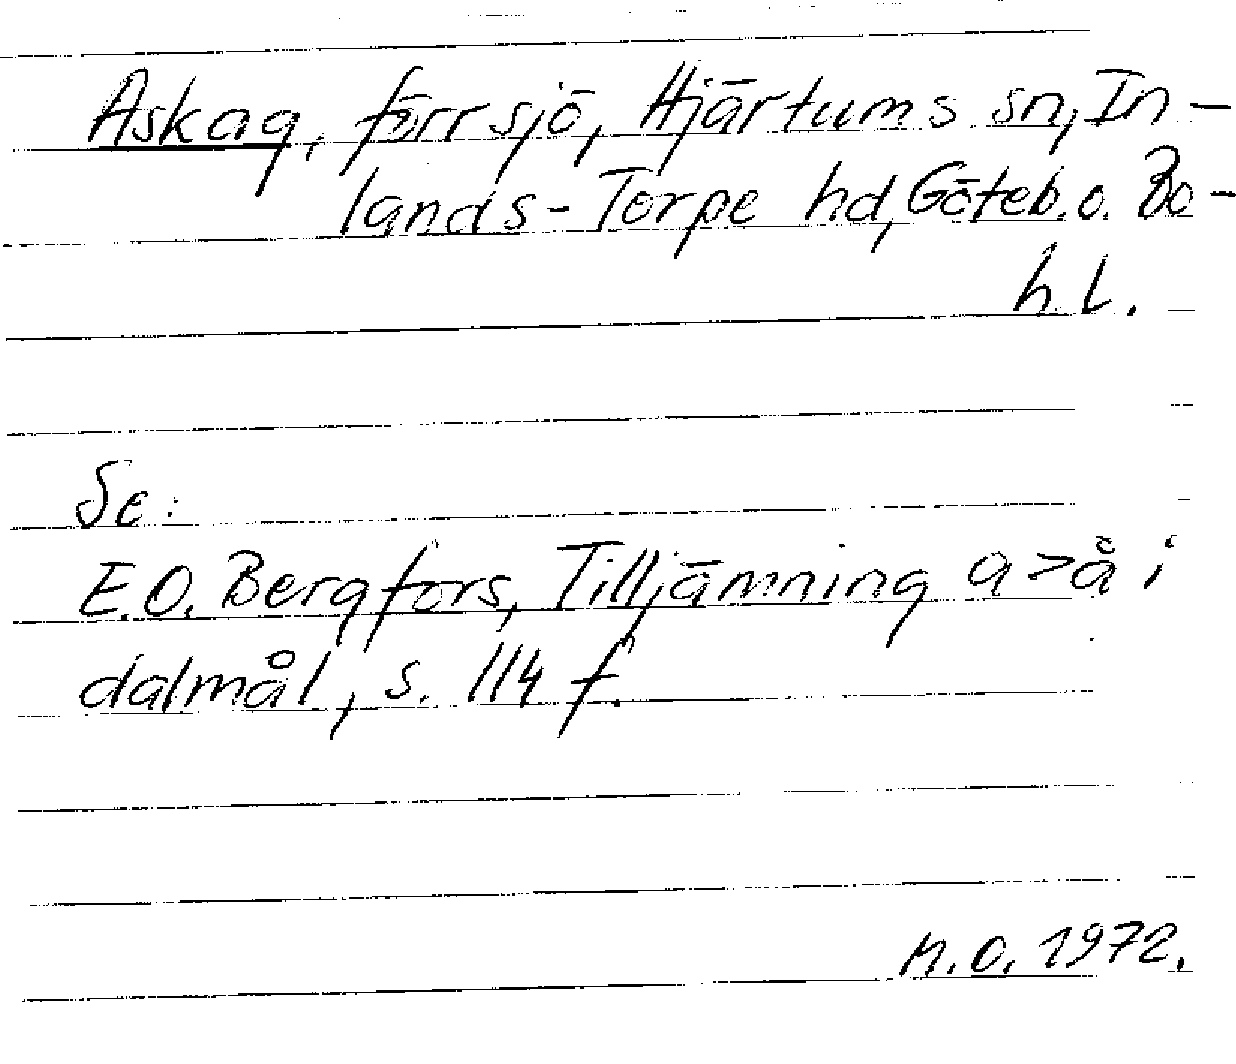 Askag, förr sjö, Hjärtums sn, In-
lands-Torpe hd, Göteb. o. Bo-
h. l.
Se:
E.O. Bergfors, Tilljämning a > å i
dalmål, s. 114 f.
M.O. 1972.